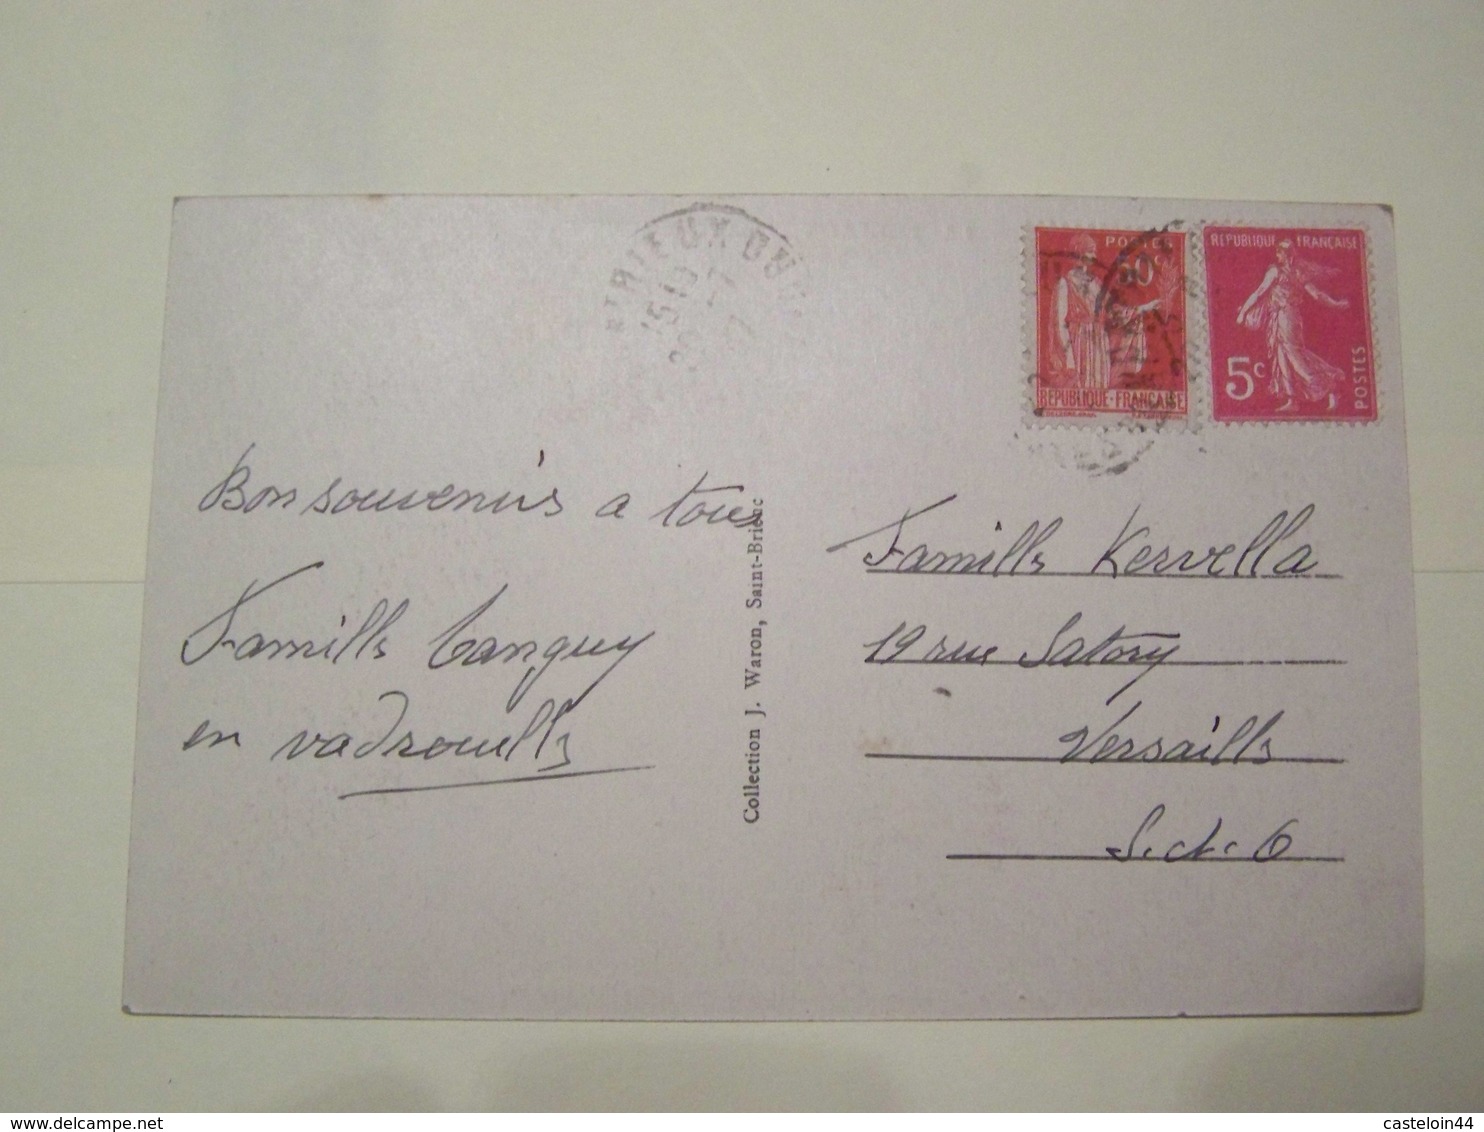 RIEUX
15 10
POSTES
RÉPUBLIQUE FRANÇAISE
REPUBLIQUE FRANÇAISE
5c
POSTES
Bon souvenirs a tous
Famille Tanguy
en vadrouille
Collection J. Waron, Saint-Brieuc
Famille Kervella
19 rue Satory
Versailles
S. et. O
delcampe.net
casteloin44